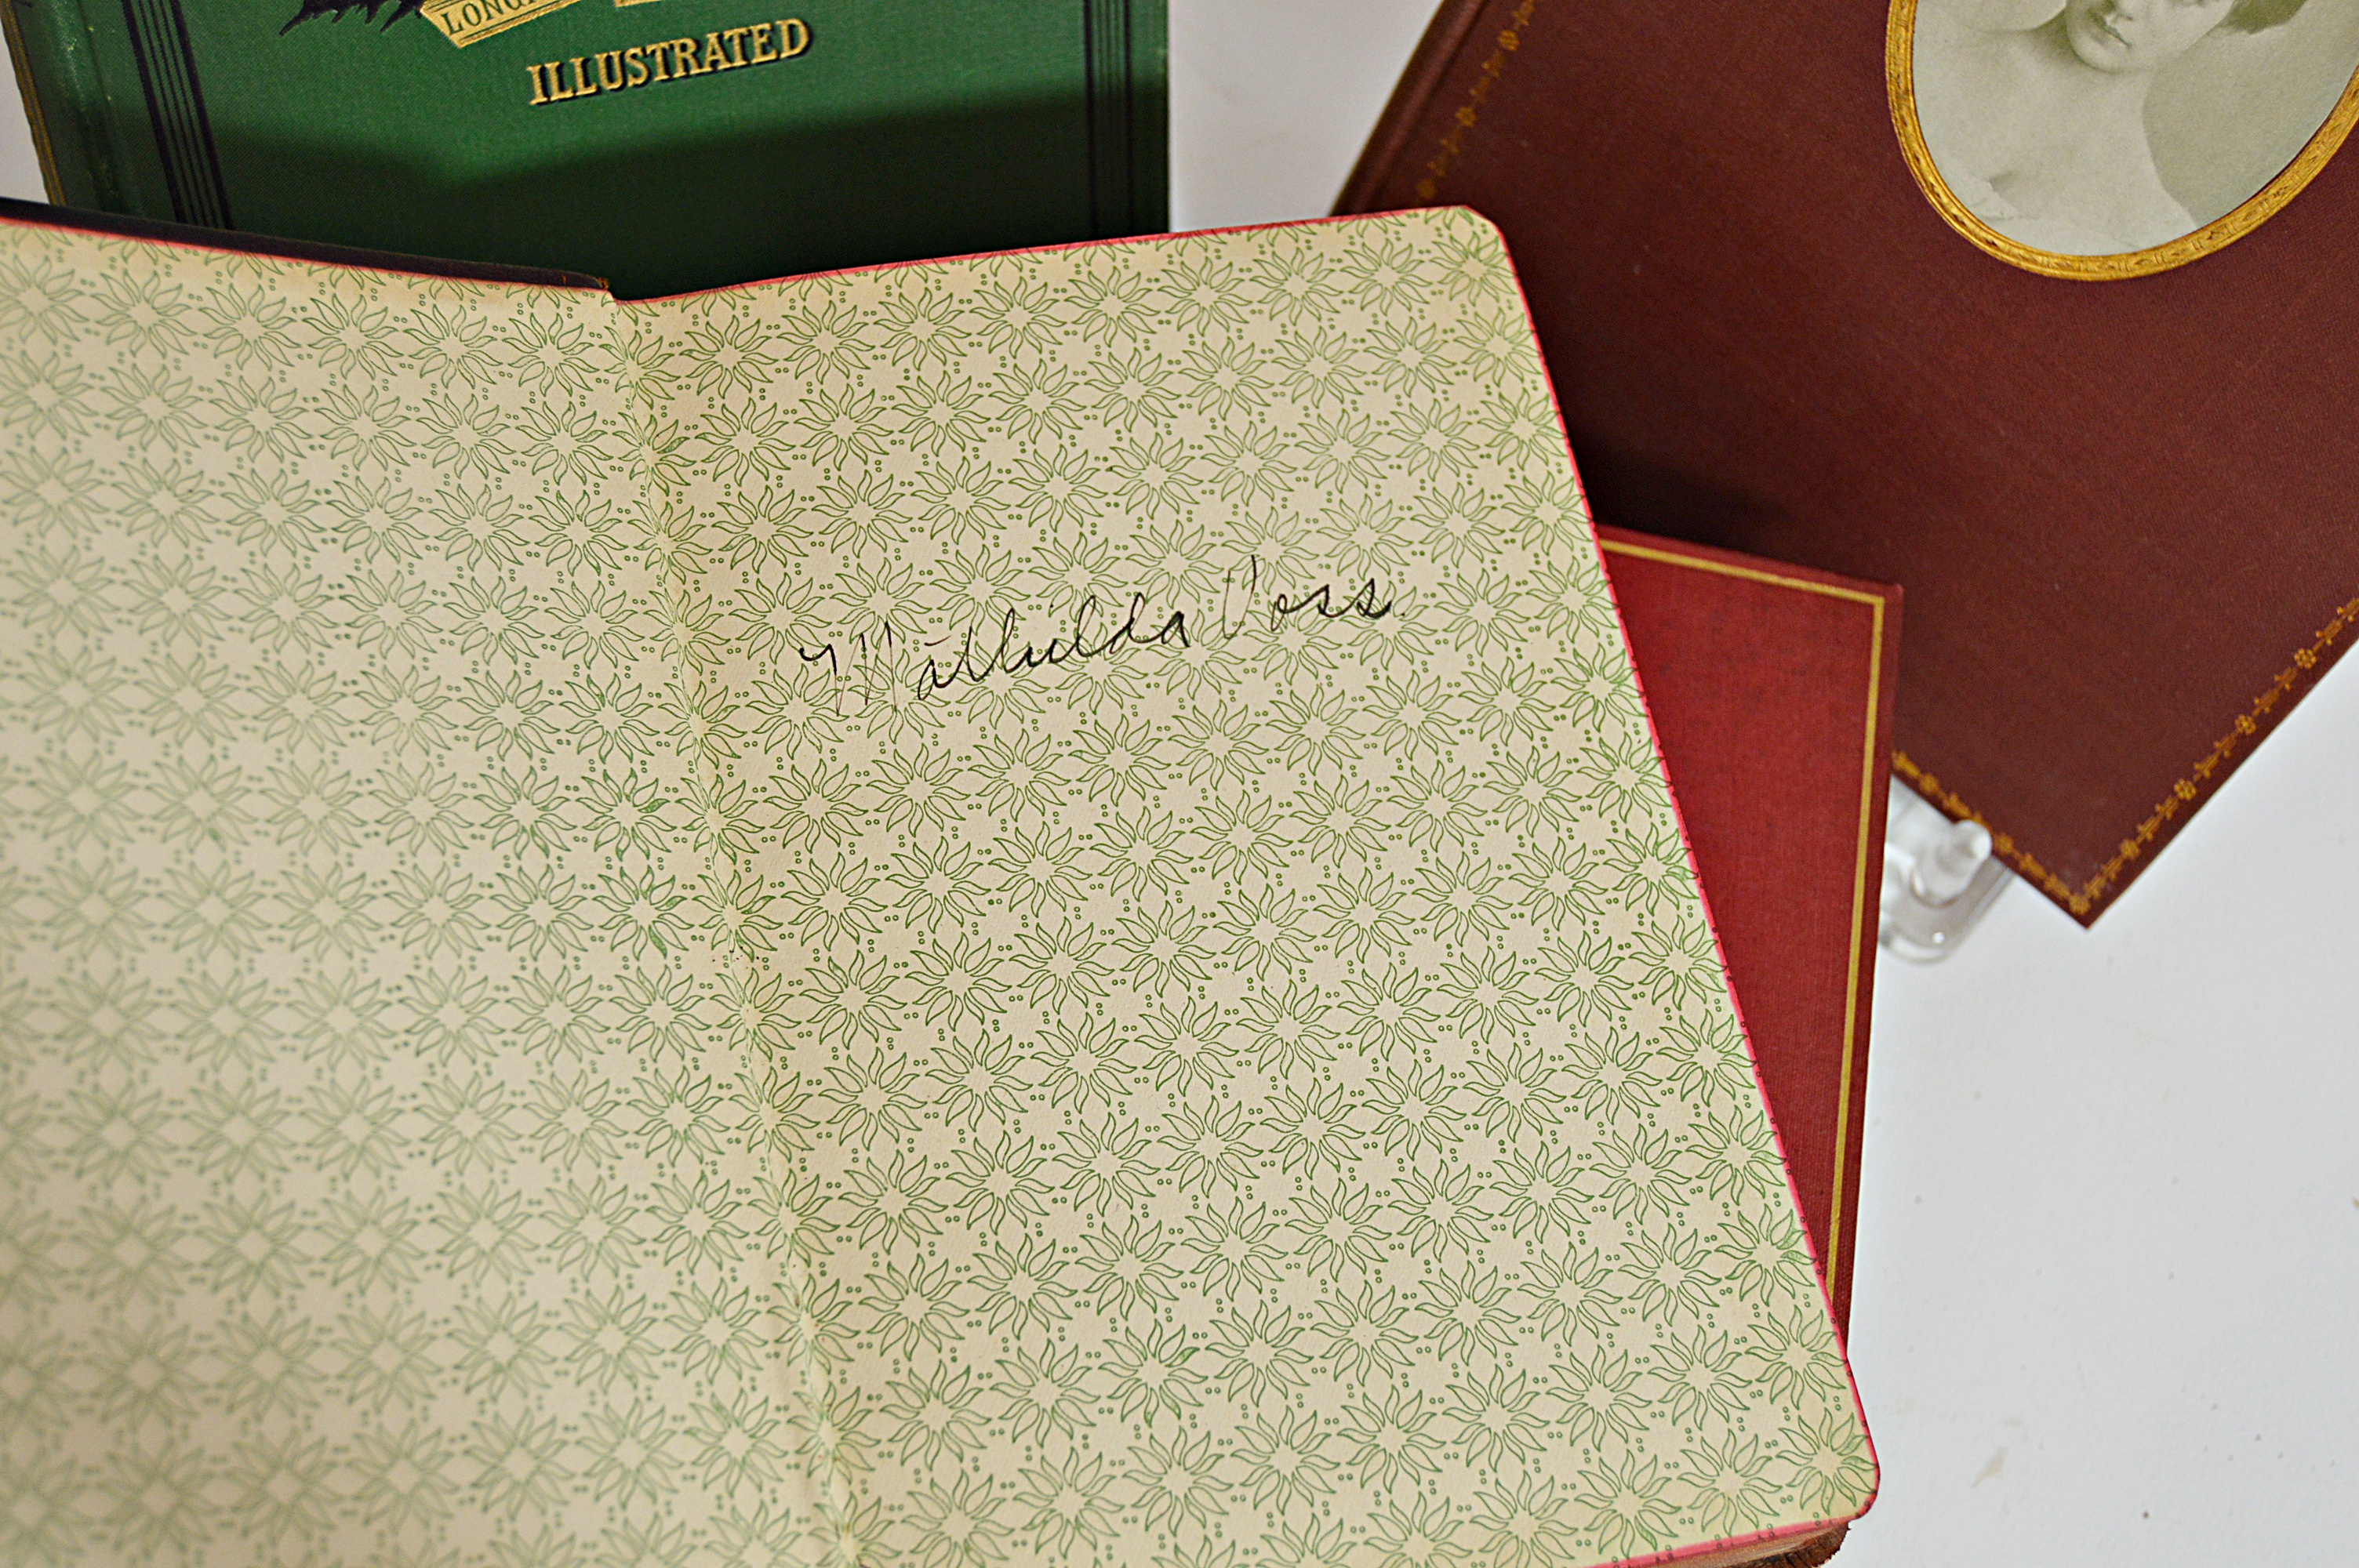 ILLUSTRATED
Mathilda Voss.